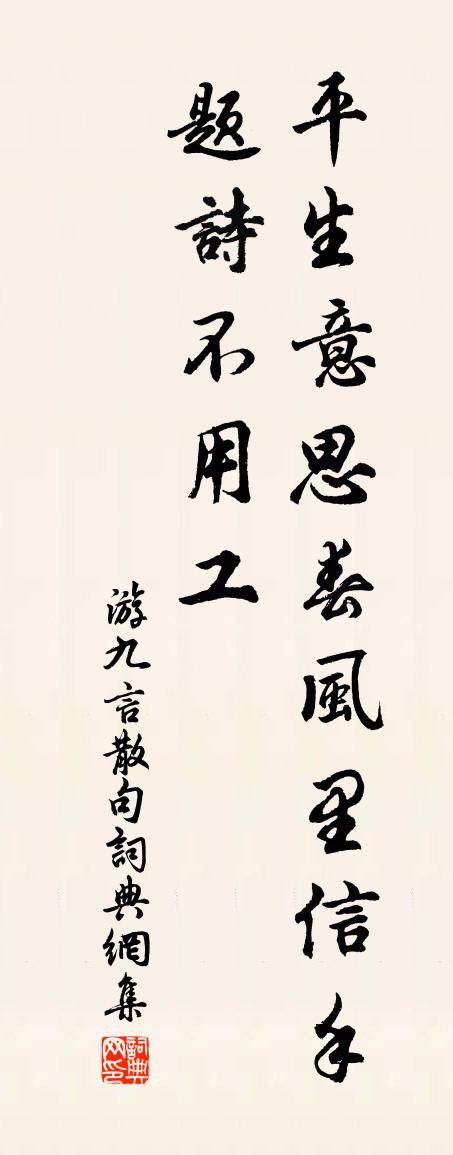 平生意思春風里信手
題詩不用工
游九言散句詞典網集
詞典网印